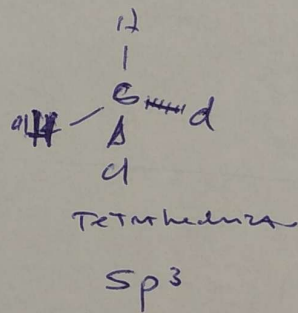 H
C
Cl
Cl
Tetrahedral
sp³